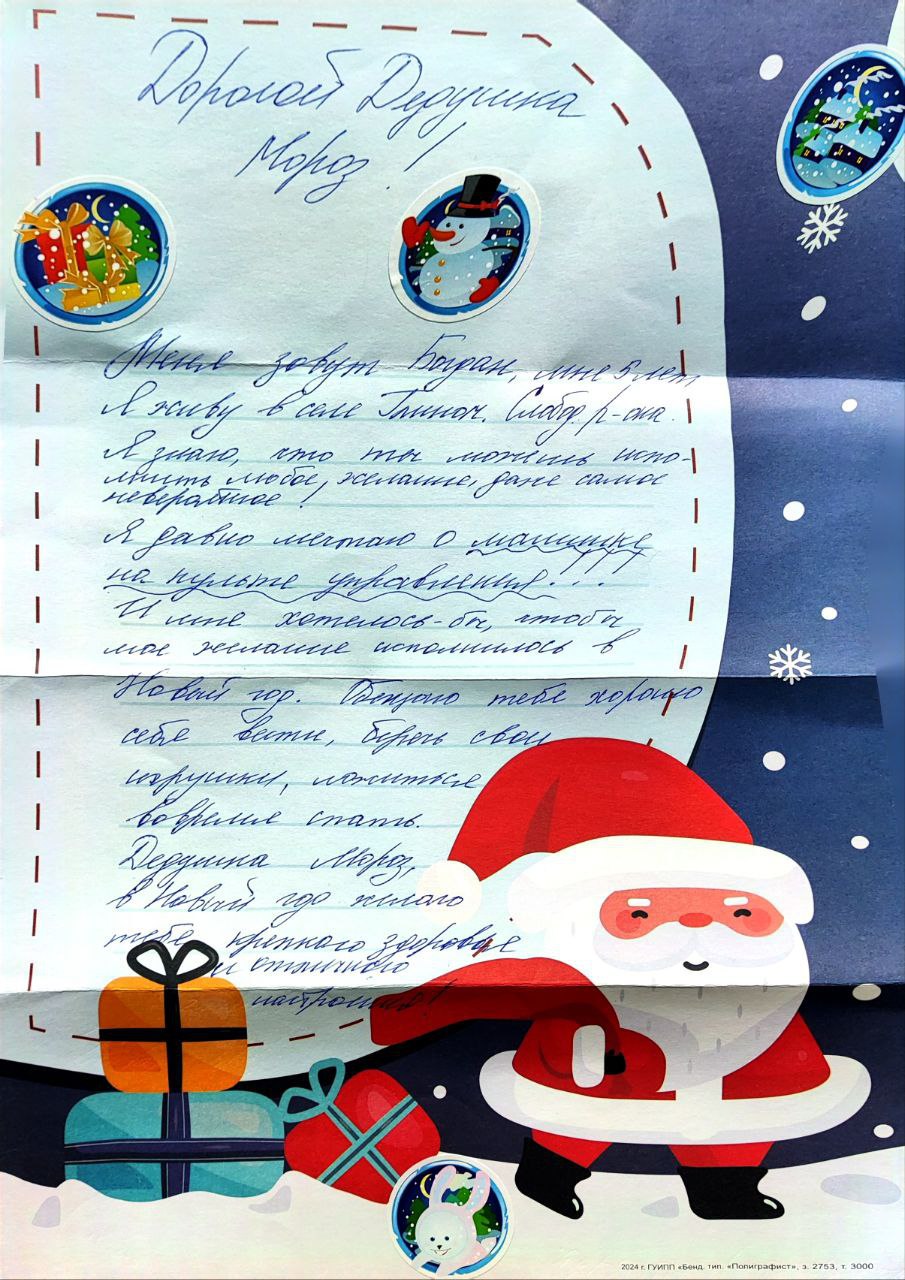 Дорогой Дедушка
Мороз!
Меня зовут Богдан, мне 5 лет
Я живу в селе Глиное. Слобод. р-она.
Я знаю, что ты можешь испо-
лнить любое, желание, даже самое
невероятное!
Я давно мечтаю о машинке
на пульте управления...
И мне хотелось-бы, чтобы
мое желание исполнилось в
Новый год. Обещаю тебе хорошо
себя вести, беречь свои
игрушки, ложиться
вовремя спать.
Дедушка Мороз,
в Новый год желаю
тебе крепкого здоровье
и отличного
настроения!
2024 г. ГУИПП «Бенд. тип. «Полиграфист», з. 2753, т. 3000